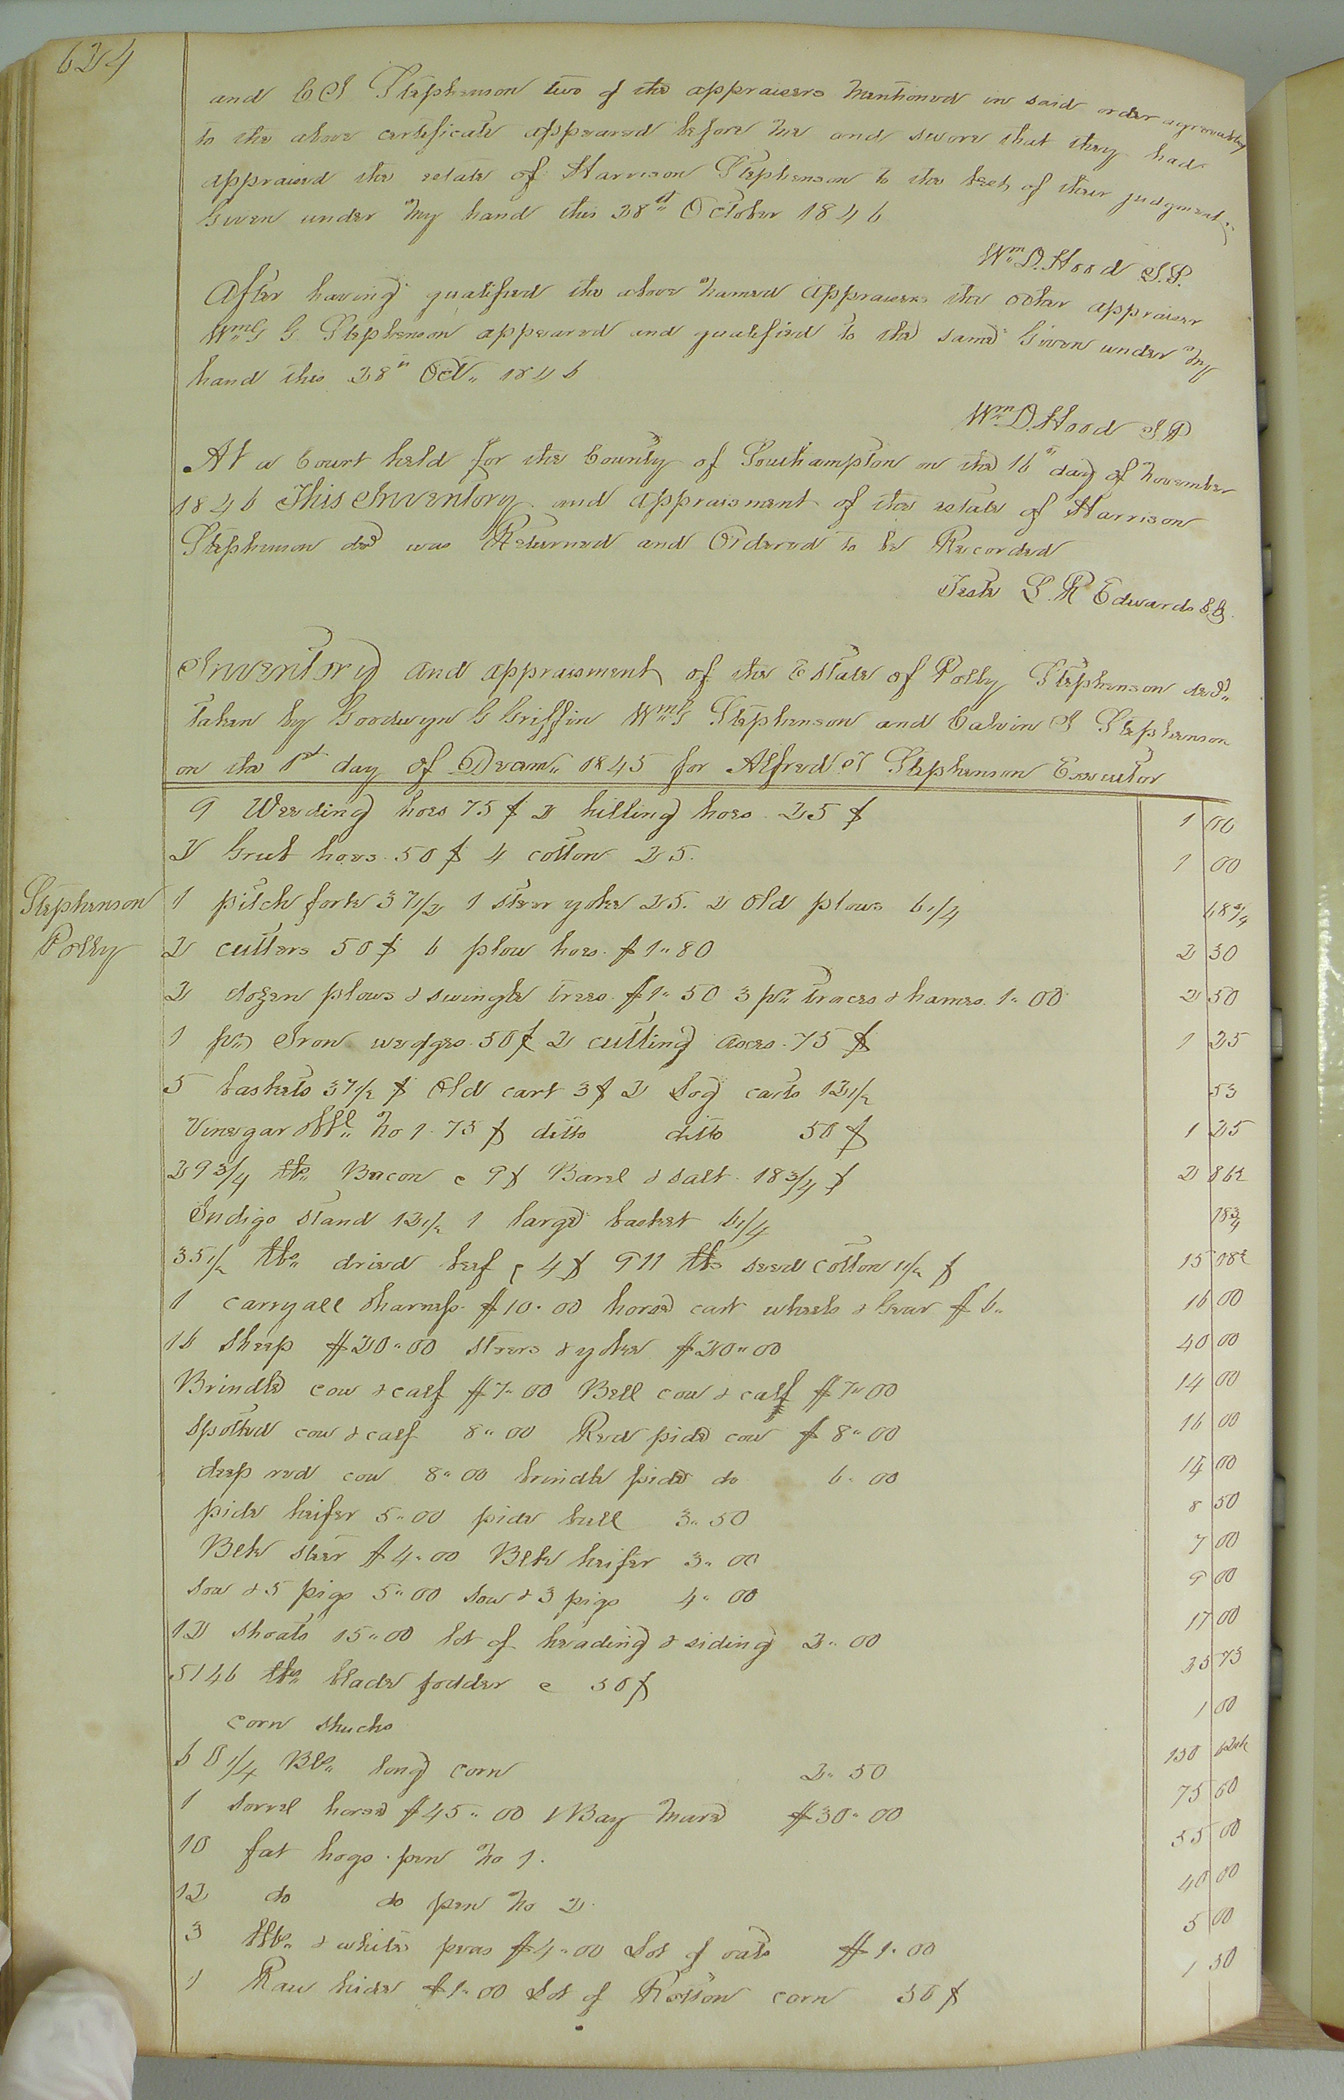 624
and C J Stephenson two of the appraisers mentioned in said order agreeably
to the above certificate appeared before me and swore that they had
appraised the estate of Harrison Stephenson to the best of their judgment
Given under my hand this 28th October 1846
Wm D. Hood J.P.
After having qualified the above named appraisers the other appraiser
Wm G Stephenson appeared and qualified to the same Given under my
hand this 28th Oct. 1846
Wm D. Hood J P
At a Court held for the County of Southampton on the 16th day of November
1846 This Inventory and appraisment of the estate of Harrison
Stephenson decd was Returned and Ordered to be Recorded
Teste L. R Edwards
Inventory and appraisment of the Estate of Polly Stephenson decd
taken by Goodwyn G Griffin Wm G Stephenson and Calvin J Stephenson
on the 1st day of Decem. 1845 for Alfred T Stephenson Executor
9 Weeding hoes 75 ¢ 2 hilling hoes 25 ¢ 1 00
2 Grub hoes 50 ¢ 4 cotton 25. 1 00
Stephenson
Polly
1 pitch fork 37 1/2 1 steer yoke 25. 2 old plows 6 1/4 68 3/4
2 cutters 50 ¢ 6 plow hoes $1.80 2 30
2 dozen plows & swingle trees $1.50 3 pr traces & hames 1.00 2 50
1 pr Iron wedges 50 ¢ 2 cutting axes 75 ¢ 1 25
5 baskets 37 1/2 ¢ old cart 3 ¢ 2 Log carts 12 1/2 53
Vinegar No 1 75 ¢ ditto ditto 50 ¢ 1 25
29 3/4 lbs Bacon @ 9 ¢ Barel & salt 18 3/4 ¢ 2 86 1/2
Indigo stand 12 1/2 1 large basket 6 1/4 18 3/4
35 1/2 lbs dried beef @ 4 ¢ 911 lbs seed cotton 1 1/2 ¢ 15 08 1/2
1 carryall & harness $10.00 horse cart wheels & Gear $6. 16 00
16 sheep $20.00 steers & yoke $20.00 40 00
Brindle cow & calf $7.00 Bell cow & calf $7.00 14 00
Spotted cow & calf 8.00 Red pide cow $8.00 16 00
deep red cow 8.00 brindle pide do 6.00 14 00
pide heifer 5.00 pide bull 3.50 8 50
Blk steer $4.00 Blk heifer 3.00 7 00
Sow & 5 pigs 5.00 Sow & 3 pigs 4.00 9 00
12 shoats 15.00 lot of heading & siding 2.00 17 00
5146 lbs blade fodder @ 50 ¢ 25 73
corn shucks 1 00
60 1/4 Bls. long corn 2.50 150 62 1/2
1 Sorrel horse $45.00 1 Bay mare $30.00 75 00
10 fat hogs pen No 1. 55 00
12 do do pen No 2. 40 00
3 & white peas $4.00 Lot of oats $1.00 5 00
1 Raw hide $1.00 Lot of Rotton corn 50 ¢ 1 50